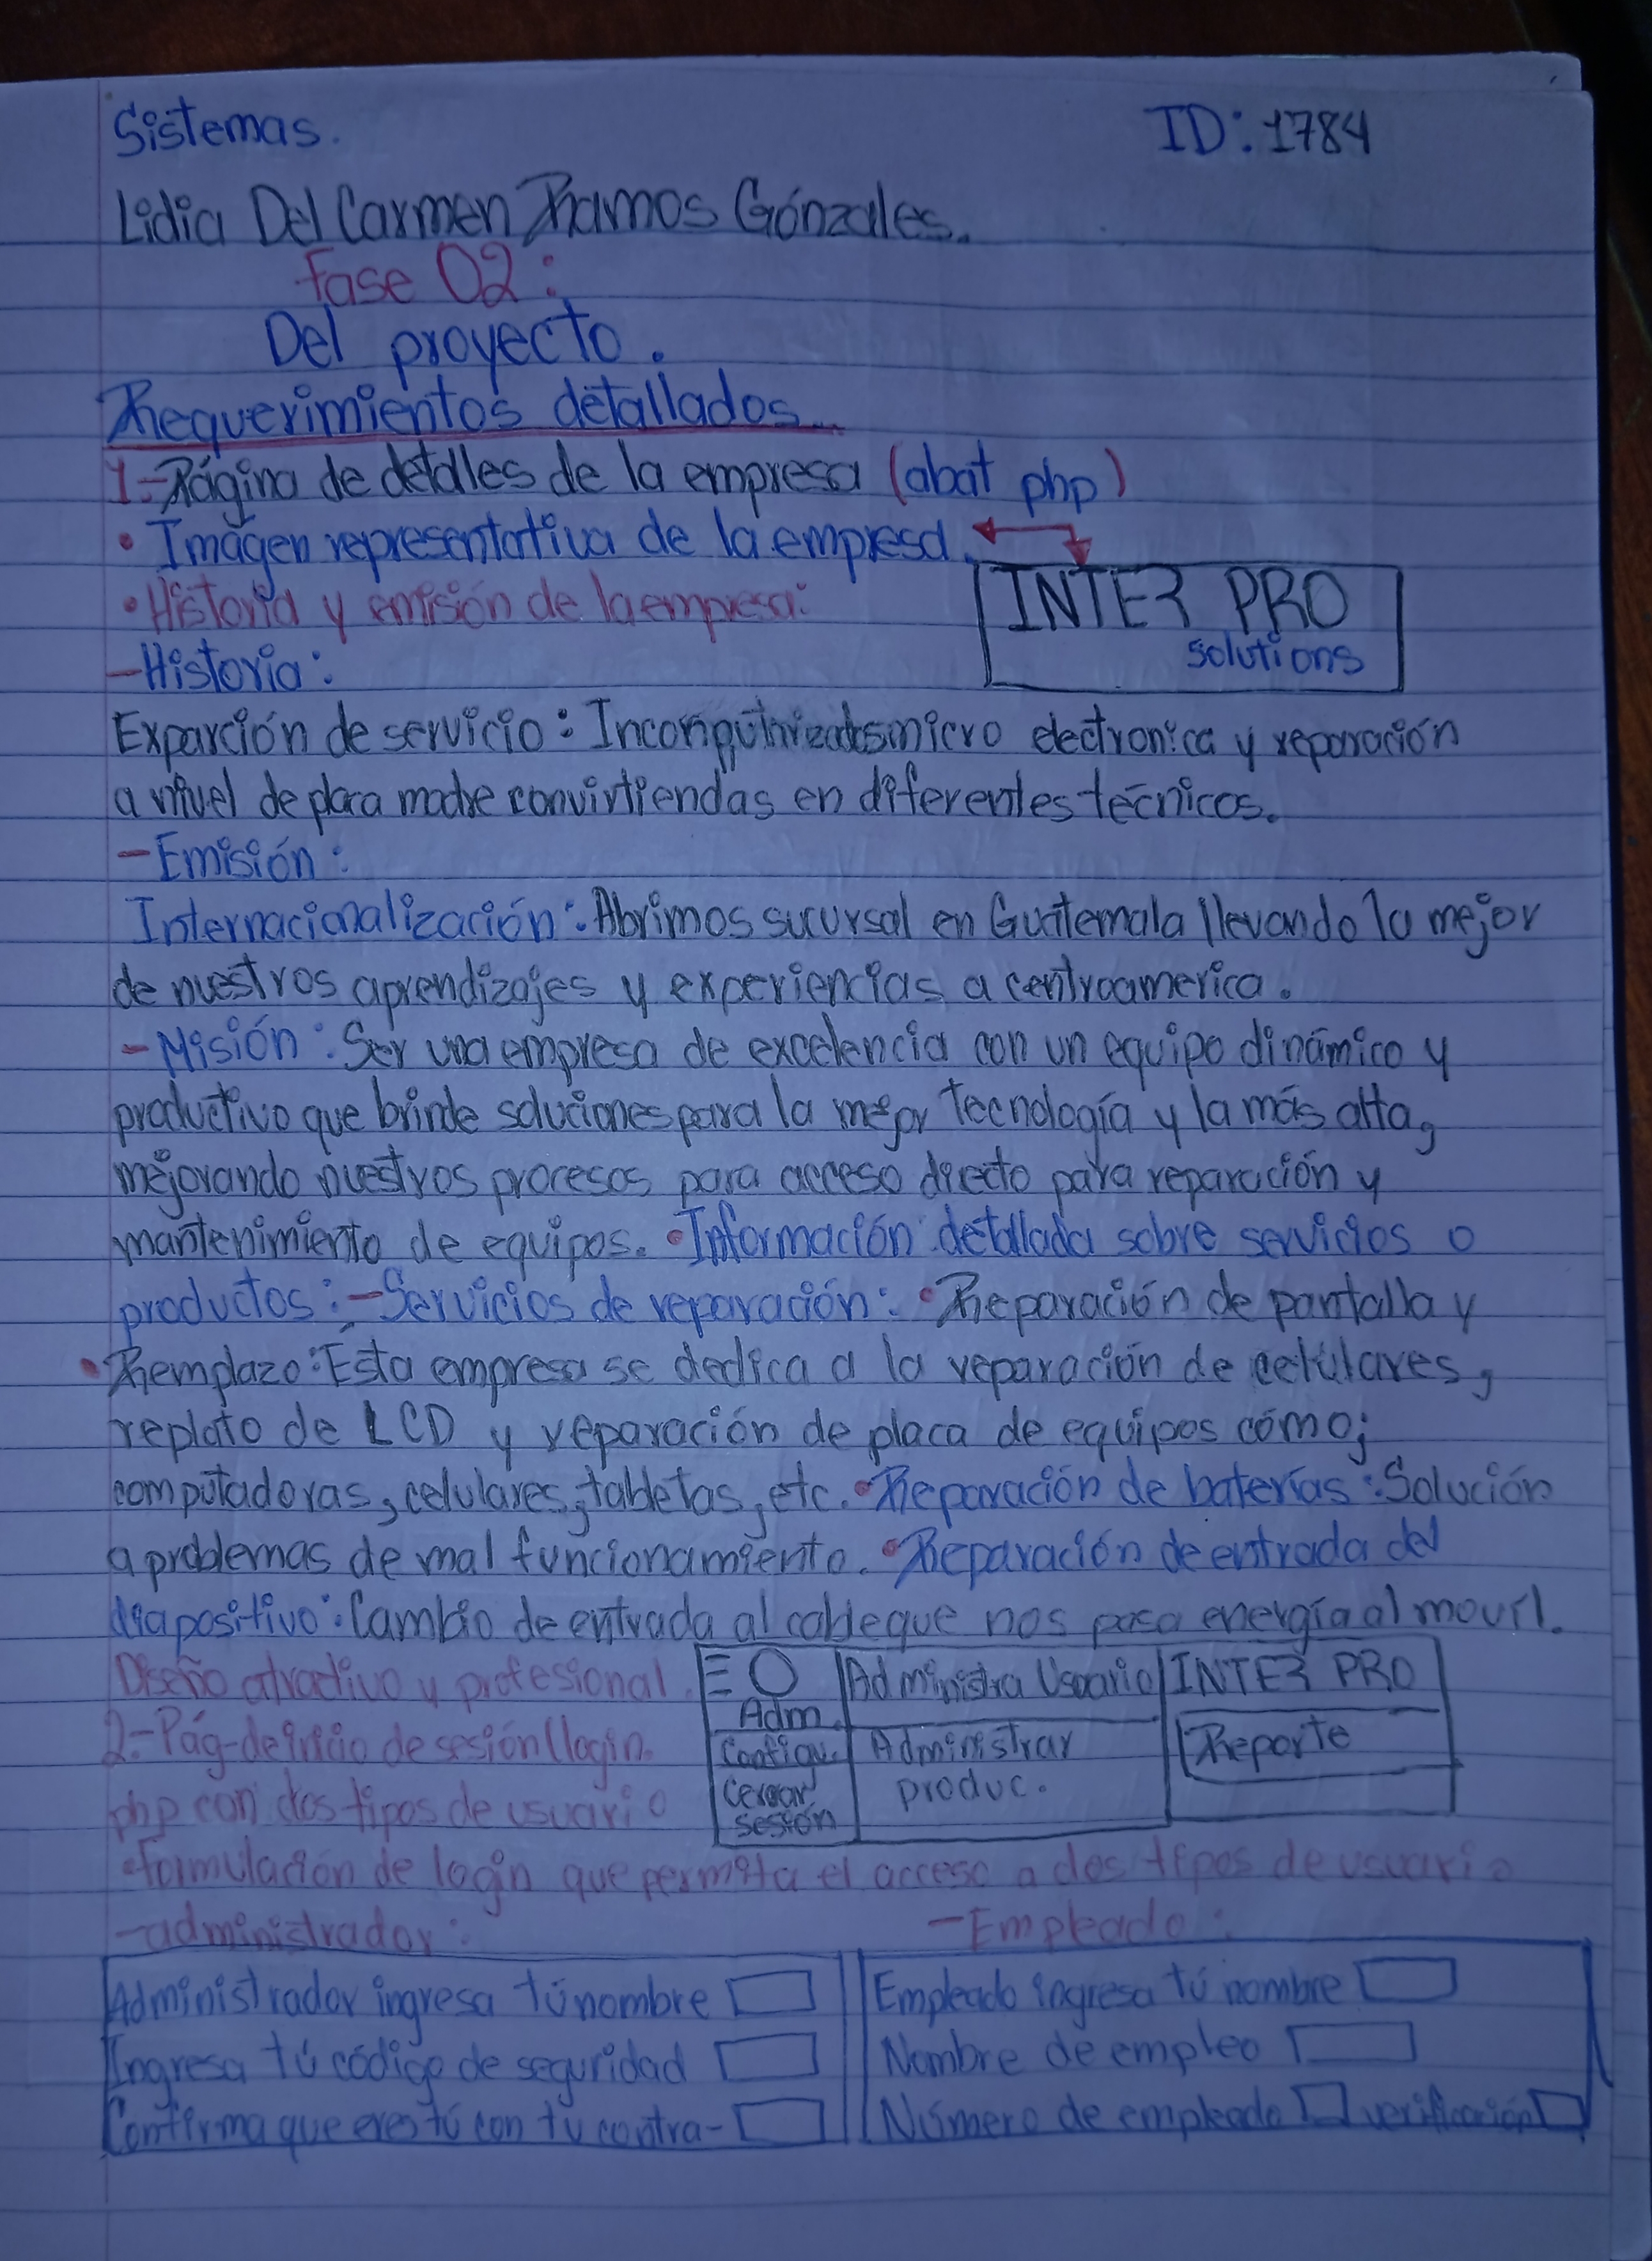 Sistemas. ID: 1784
Lidia Del Carmen Ramos Gónzales.
fase 02:
Del proyecto.
Requerimientos detallados...
1.- Página de detalles de la empresa (abat php)
• Imágen representativa de la empresa.
• Historia y emisión de la empresa:
INTER PRO
Solutions
- Historia:
Exparción de servicio: micro electronica y reparación
a nivel de placa madre convirtiendas en diferentes técnicos.
- Emisión:
Internacionalización: Abrimos sucursal en Guatemala llevando lo mejor
de nuestros aprendizajes y experiencias a centroamerica.
- Misión: Ser una empresa de excelencia con un equipo dinámico y
productivo que brinde soluciones para la mejor tecnología y la más alta,
mejorando nuestros procesos para acceso directo para reparación y
mantenimiento de equipos. • Información detallada sobre servicios o
productos: - Servicios de reparación: • Reparación de pantalla y
• Remplazo: Esta empresa se dedica a la reparación de celulares,
replato de LCD y reparación de placa de equipos cómo;
computadoras, celulares, tabletas, etc. • Reparación de baterías: Solución
a problemas de mal funcionamiento. • Reparación de entrada del
diapositivo: Cambio de entrada al cable que nos pasa energía al movíl.
Diseño atractivo y profesional.
2.- Pág- de inicio de sesión (login.
php con dos tipos de usuario
Adm.
Configu.
Cerrar
sesión
Administra Usuario
Administrar
produc.
INTER PRO
Reporte
• Formulación de login que permita el acceso a dos tipos de usuario
- administrador: - Empleado:
Administrador ingresa tú nombre
Ingresa tú código de seguridad
Confirma que eres tú con tu contra-
Empleado ingresa tú nombre
Nombre de empleo
Número de empleado verificación